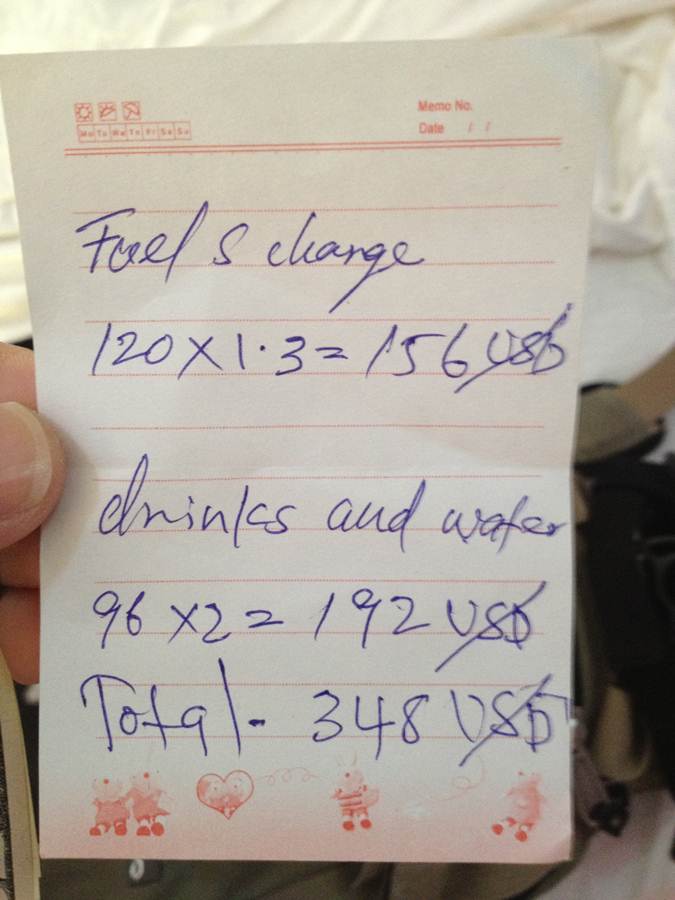 Memo No.
Mo Tu We Th Fr Sa Su
Date / /
Fuel S change
120 X 1.3 = 156 USD
drinks and water
96 X 2 = 192 USD
Total - 348 USD